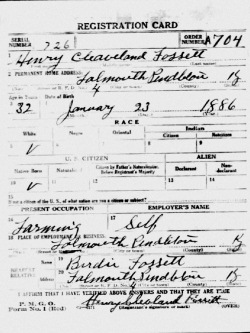 REGISTRATION CARD
SERIAL NUMBER 726 ORDER NUMBER A704
1 Henry Cleaveland Fossett
2 PERMANENT HOME ADDRESS:
Falmouth Pendleton Ky
4
Age in Years Date of Birth
32 January 23 1886
RACE
White Negro Oriental Indian
Citizen Noncitizen
V
U. S. CITIZEN ALIEN
Native Born Naturalized Citizen by Father's Naturalization Before Registrant's Majority Declarant Non-declarant
V
If not a citizen of the U. S., of what nation are you a citizen or subject?
PRESENT OCCUPATION EMPLOYER'S NAME
Farming Self
PLACE OF EMPLOYMENT OR BUSINESS
Falmouth Pendleton Ky
NEAREST RELATIVE
Birdie Fossett
Falmouth Pendleton Ky
I AFFIRM THAT I HAVE VERIFIED ABOVE ANSWERS AND THAT THEY ARE TRUE
P. M. G. O.
Form No. 1 (Red) Henry Cleveland Fossett